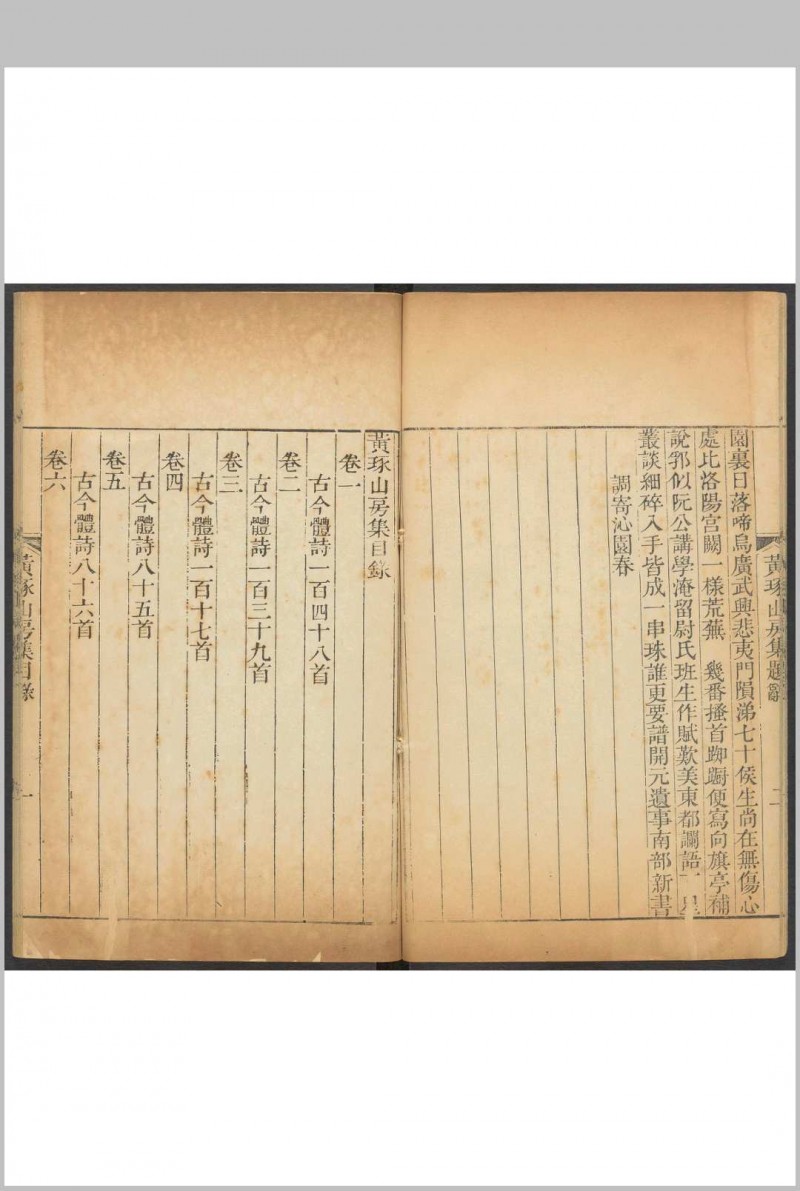 黃琢山房集題辭
二
園裏日落啼烏廣武興悲夷門隕涕七十侯生尚在無傷心
處比洛陽宮闕一樣荒蕪　幾番搔首踟躕便寫向旗亭補
說郛似阮公講學淹留尉氏班生作賦歎美東都讕語
叢談細碎入手皆成一串珠誰更要譜開元遺事南部新書
調寄沁園春
黃琢山房集目錄
卷一
古今體詩一百四十八首
卷二
古今體詩一百三十九首
卷三
古今體詩一百十七首
卷四
古今體詩八十五首
卷五
古今體詩八十六首
卷六
黃琢山房集目錄
一